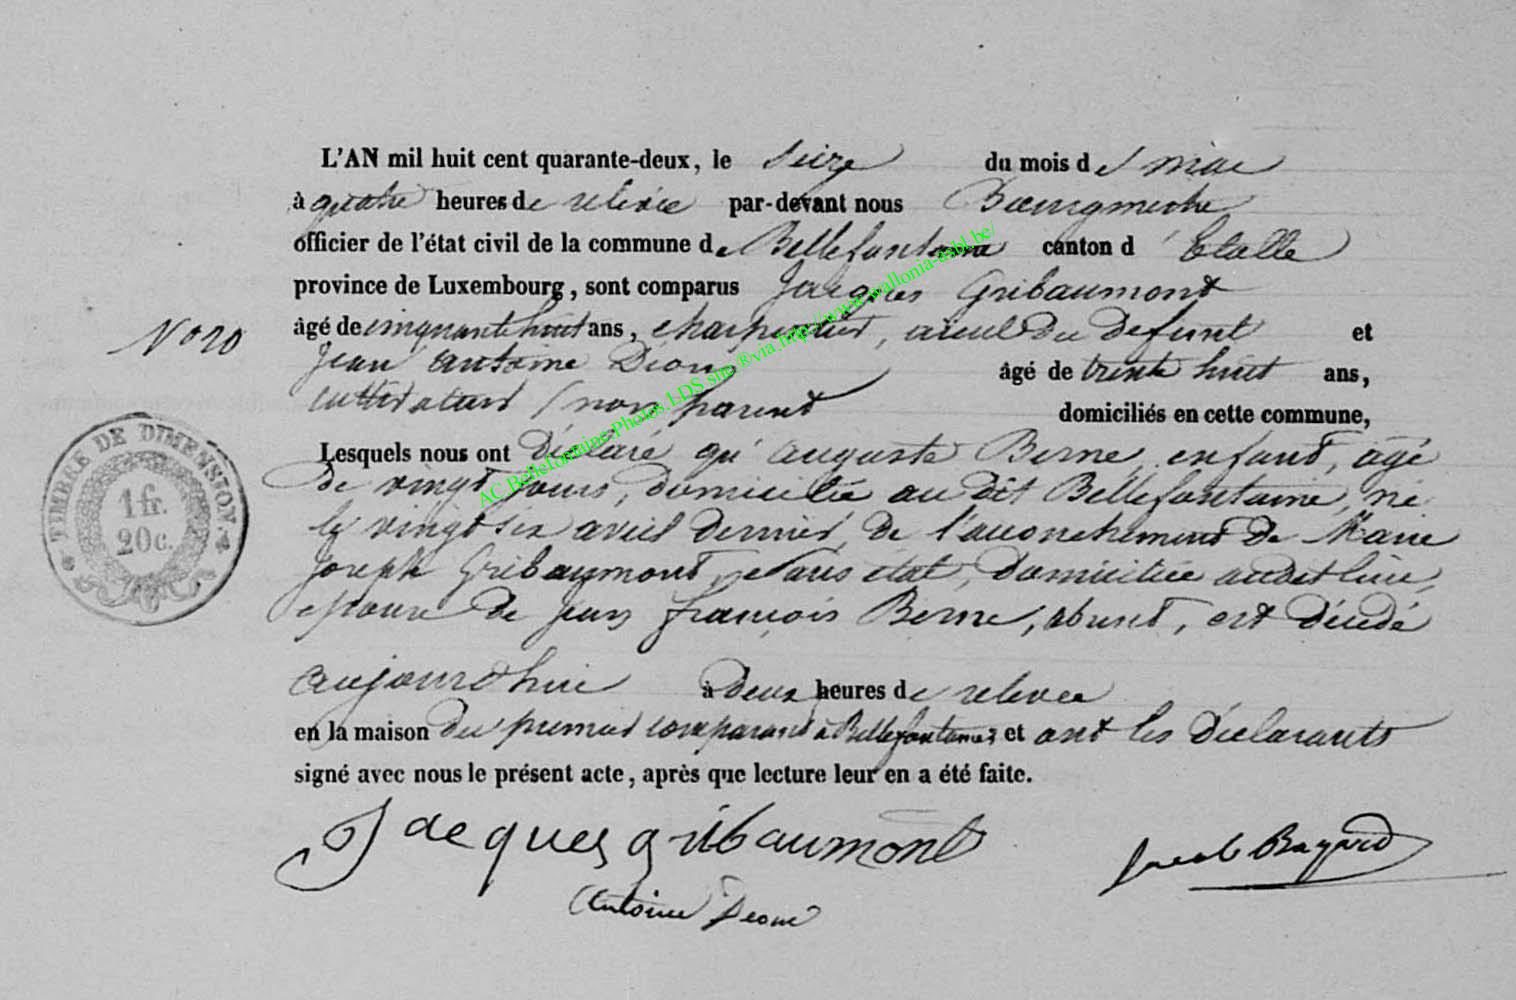 L'AN mil huit cent quarante-deux, le seize du mois de mai
à quatre heures de relevée par-devant nous Bourgmestre
officier de l'état civil de la commune de Bellefontaine canton d'Etalle
province de Luxembourg, sont comparus Jacques Gribaumont
âgé de cinquante huit ans, charpentier, aieul du defunt et
No 20
Jean antoine Dion âgé de trente huit ans,
cultivateur, non parent domiciliés en cette commune,
Lesquels nous ont déclaré qu'auguste Berne, enfant, agé
de vingt jours, domicilié au dit Bellefontaine, né
le vingt six avril dernier, de l'accouchement de Marie
Joseph Gribaumont, sans état, domiciliée audit lieu,
epouse de Jean françois Berne, absent, est décédé
aujourd'hui à deux heures de relevée
en la maison du premier comparant à Bellefontaine; et ont les déclarants
signé avec nous le présent acte, après que lecture leur en a été faite.
TIMBRE DE DIMENSION
1 fr.
20 c.
Jacques gribaumont
Jacob Bayard
Antoine Dion
AC.Bellefontaine.Photos.LDS site ® via http://www.wallonia-asbl.be/